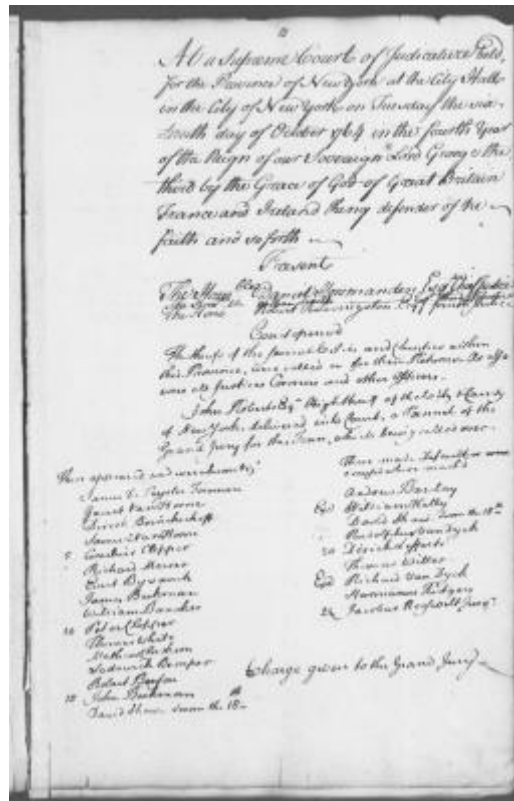 At a Supreme Court of Judicature held
for the Province of New York at the City Hall
in the City of New York on Tuesday the
day of October 1764 in the fourth Year
of the Reign of our Sovereign Lord George the
third by the Grace of God of Great Britain
France and Ireland King defender of the
faith and so forth
Present
The Hon Daniel Horsmanden Esq Chief Justice
The Hon Robert R Livingston Esq fourth Justice
Court opened
of the several Cities and Counties within
this Province, were called in for their Returns As also
were all Justices Coroners and other officers.
John Roberts Esq High Sheriff of the City & County
of New York, delivered into Court, a Pannel of the
Grand Jury for the Term, which being called over
Then appeared and were sworn
James Foreman
Garret Van Horne
Dirck Brinckerhoff
5 Cornelius Clopper
Richard
Evert Byvanck
James Beekman
William Bancker
10 Peter Clopper
Thomas White
Robert Benson
15 John Beekman
David Shaw sworn the 18th
These made default or were
Andrew Barclay
William Kelly
David Shaw sworn the 18th
Rudolphus Van Dyck
20 Dirick Lefferts
Thomas Witter
Richard Van Dyck
Harmanus Rutgers
24 Jacobus Roosevelt Junr
Charge given to the Grand Jury